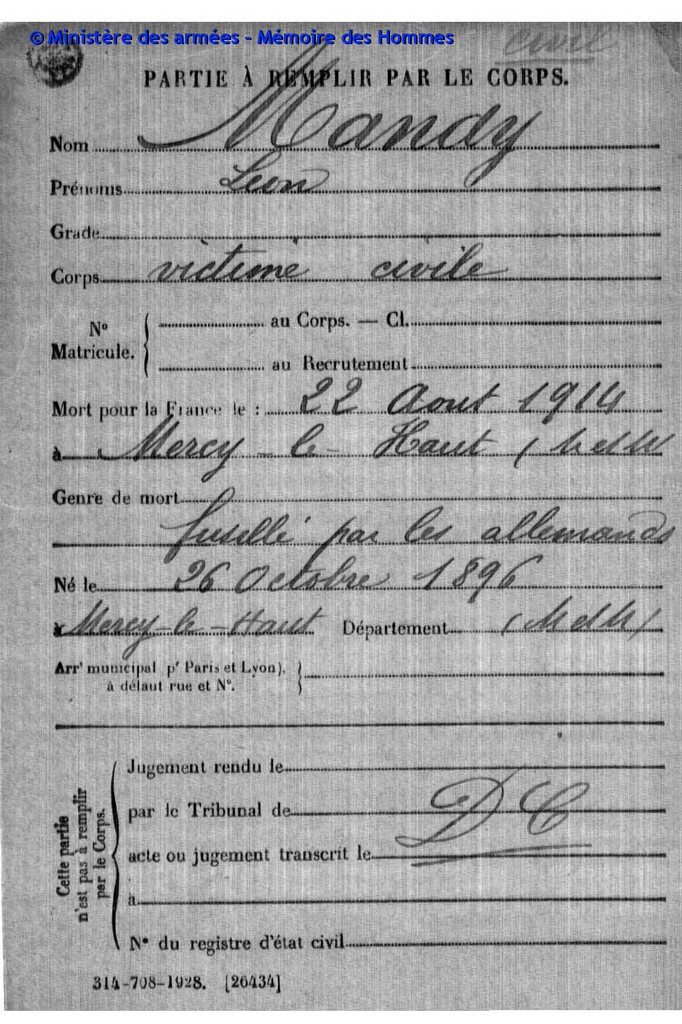 © Ministère des armées - Mémoire des Hommes
civil
PARTIE À REMPLIR PAR LE CORPS.
Nom Mandy
Prénoms Leon
Grade
Corps victime civile
N° Matricule.
au Corps. — Cl.
au Recrutement
Mort pour la France le : 22 Aout 1914
à Mercy-le-Haut (M et M)
Genre de mort
fusillé par les allemands
Né le 26 Octobre 1896
à Mercy-le-Haut Département (M et M)
Arrt municipal pr Paris et Lyon).
à défaut rue et N°.
Cette partie n'est pas à remplir par le Corps.
Jugement rendu le
par le Tribunal de
acte ou jugement transcrit le
DC
à
N° du registre d'état civil
314-708-1928. [26434]